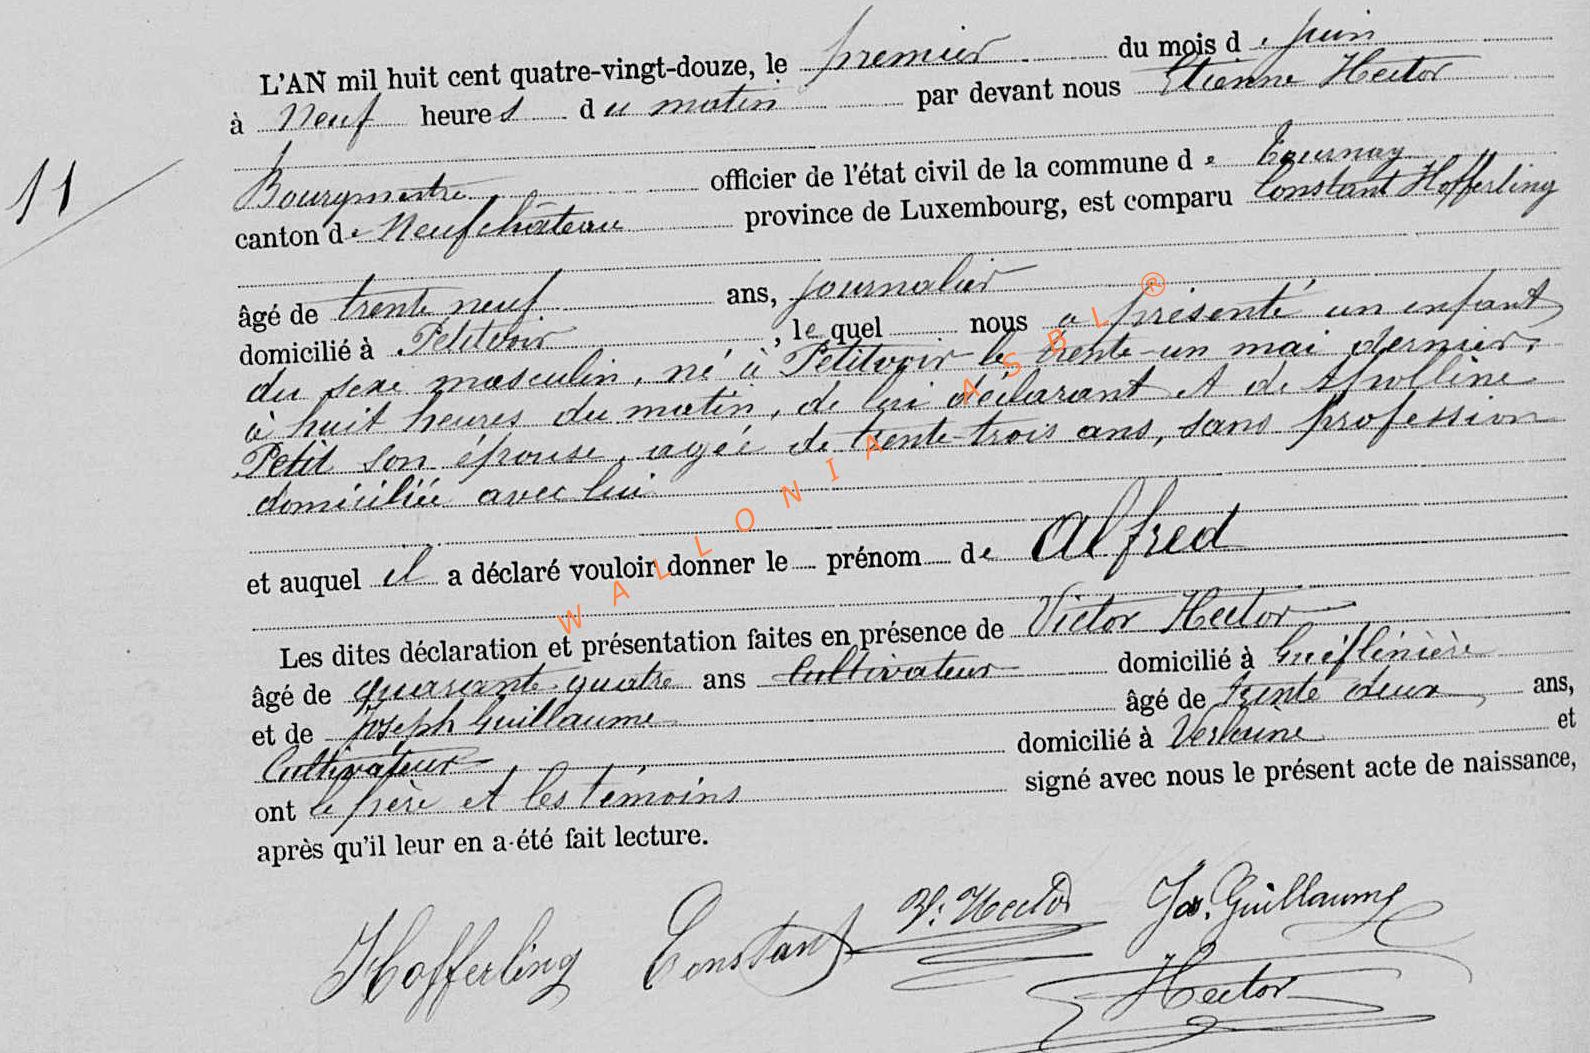 L'AN mil huit cent quatre-vingt-douze, le premier du mois de juin
à Neuf heures du matin par devant nous Etienne Hector
Bourgmestre officier de l'état civil de la commune de Tournay
canton de Neufchâteau province de Luxembourg, est comparu Constant Hofferling
11
âgé de trente neuf ans, journalier
domicilié à Petitvoir, lequel nous a présenté un enfant
du sexe masculin, né à Petitvoir le trente-un mai dernier,
à huit heures du matin, de lui déclarant et de Apolline
Petit son épouse, agée de trente-trois ans, sans profession
domiciliée avec lui
et auquel il a déclaré vouloir donner le prénom de Alfred
Les dites déclaration et présentation faites en présence de Victor Hector
âgé de quarante-quatre ans Cultivateur domicilié à
et de Joseph Guillaume âgé de trente deux ans,
Cultivateur domicilié à Verlaine et
ont le père et les témoins signé avec nous le présent acte de naissance,
après qu'il leur en a été fait lecture.
Hofferling Constant V. Hector Jos. Guillaume
Hector
WALLONIA ASBL ®